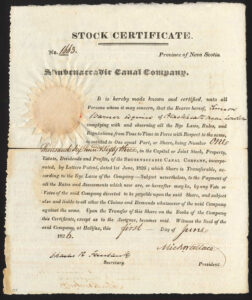 STOCK CERTIFICATE.
No. 1663.
Province of Nova Scotia
Shubenacadie Canal Company.
It is hereby made known and certified, unto all
Persons whom it may concern, that the Bearer hereof,
Warner Esquire of near London
complying with and observing all the Bye Laws, Rules, and
Regulations from Time to Time in Force with Respect to the same,
is entitled to One equal Part, or Share, being Number One
Thousand Six hundred Sixty three, in the Capital or Joint Stock, Property,
Estate, Dividends and Profits, of the SHUBENACADIE CANAL COMPANY, incorporated,
by Letters Patent, dated 1st June, 1826; which Share is Transferable, according
to the Bye Laws of the Company—Subject nevertheless, to the Payment of
all the Rates and Assessments which now are, or hereafter may be, by Vote or
Votes of the said Company, directed to be payable upon the said Share, and subject
also and liable to all other the Claims and Demands whatsoever of the said Company
against the same. Upon the Transfer of this Share on the Books of the Company
this Certificate, except as to the Assignee, becomes void. Witness the Seal of the
said Company, at Halifax, this first Day of June
182
Secretary.
Mich Wallace
President.